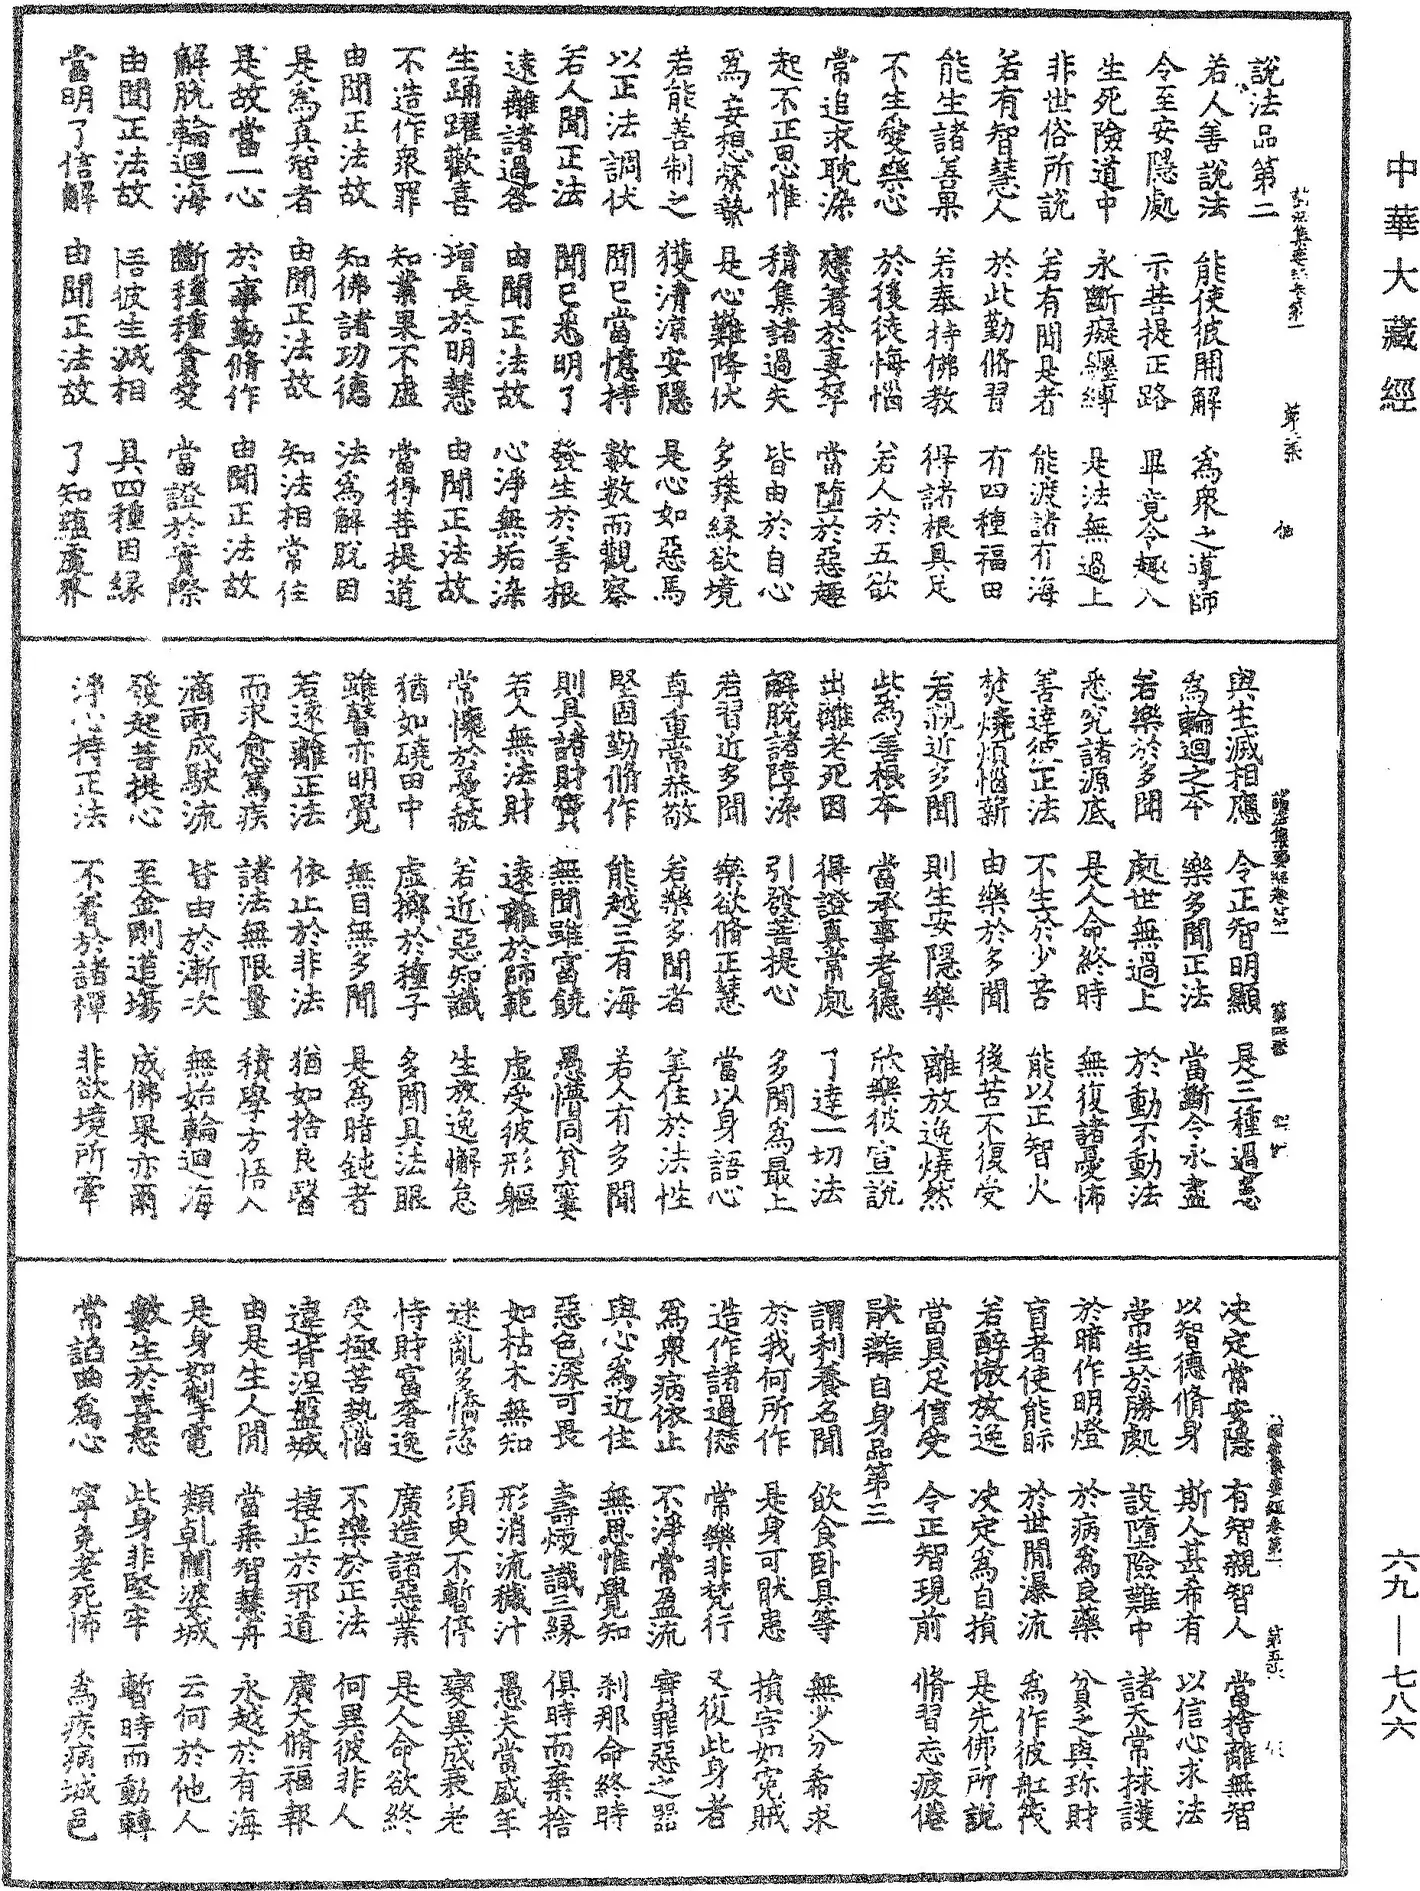 中華大藏經
說法品第二
若人善說法　能使彼開解　為眾之導師
令至安隱處　示菩提正路　畢竟令趣入
生死險道中　永斷癡纏縛　是法無過上
非世俗所說　若有聞是者　能渡諸有海
若有智慧人　於此勤脩習　有四種福田
能生諸善果　若奉持佛教　得諸根具足
不生愛樂心　於後徒悔惱　若人於五欲
常追求耽染　戀著於妻孥　當墮於惡趣
起不正思惟　積集諸過失　皆由於自心
為妄想縈繫　是心難降伏　多葉緣欲境
若能善制之　獲清涼安隱　是心如惡馬
以正法調伏　聞已當憶持　數數而觀察
若人聞正法　聞已悉明了　發生於善根
遠離諸過咎　由聞正法故　心淨無垢染
生踊躍歡喜　增長於明慧　由聞正法故
不造作眾罪　知業果不虛　當得菩提道
由聞正法故　知佛諸功德　法為解脫因
是為真智者　由聞正法故　知法相常住
是故當一心　於事勤脩作　由聞正法故
解脫輪迴海　斷種種貪愛　當證於實際
由聞正法故　悟彼生滅相　具四種因緣
當明了信解　由聞正法故　了知蘊處界
與生滅相應　令正智明顯　是三種過患
為輪迴之本　樂多聞正法　當斷令永盡
若樂於多聞　處世無過上　於動不動法
悉究諸源底　是人命終時　無復諸憂怖
善達彼正法　不生於少苦　能以正智火
焚燒煩惱薪　由樂於多聞　後苦不復受
若親近多聞　則生安隱樂　離放逸燒然
此為善根本　當承事耆德　欣樂彼宣說
出離老死因　得證真常處　了達一切法
解脫諸障染　引發菩提心　多聞為最上
若習近多聞　樂欲脩正慧　當以身語心
尊重常恭敬　若樂多聞者　善住於法性
堅固勤脩作　能越三有海　若人有多聞
則具諸財寶　無聞雖富饒　愚懵同貧窶
若人無法財　遠離於師範　虛受彼形軀
常懷於憂慼　若近惡知識　生放逸懈怠
猶如磽田中　虛擲於種子　多聞具法眼
雖瞽亦明覺　無目無多聞　是為暗鈍者
若遠離正法　依止於非法　猶如捨良醫
而求愈篤疾　諸法無限量　積學方悟入
滴雨成駛流　皆由於漸次　無始輪迴海
發起菩提心　至金剛道場　成佛果亦爾
淨心持正法　不著於諸禪　非欲境所牽
決定常安隱　有智親智人　當捨離無智
以智德脩身　斯人甚希有　以信心求法
常生於勝處　設墮險難中　諸天常捄護
於暗作明燈　於病為良藥　貧乏與珍財
盲者使能眎　於世間瀑流　為作彼舡筏
若醉憿放逸　決定為自損　是先佛所說
當具足信受　令正智現前　脩習忘疲倦
猒離自身品第三
謂利養名聞　飲食臥具等　無少分希求
於我何所作　是身可猒患　損害如冤賊
造作諸過愆　常樂非梵行　又復此身者
為眾病依止　不淨常盈流　實罪惡之器
與心為近住　無思惟覺知　剎那命終時
惡色深可畏　壽煗識三緣　俱時而棄捨
如枯木無知　形消流穢汁　愚夫當盛年
迷亂多憍恣　須臾不暫停　變異成衰老
恃財富奢逸　廣造諸惡業　是人命欲終
受極苦熱惱　不樂於正法　何異彼非人
違背涅盤城　捿止於邪道　廣大脩福報
由是生人間　當乘智慧舟　永越於有海
是身如掣電　類乹闥婆城　云何於他人
數生於喜怒　此身非堅牢　暫時而動轉
常諂曲為心　寧免老死怖　為疾病城邑
六九—七八六